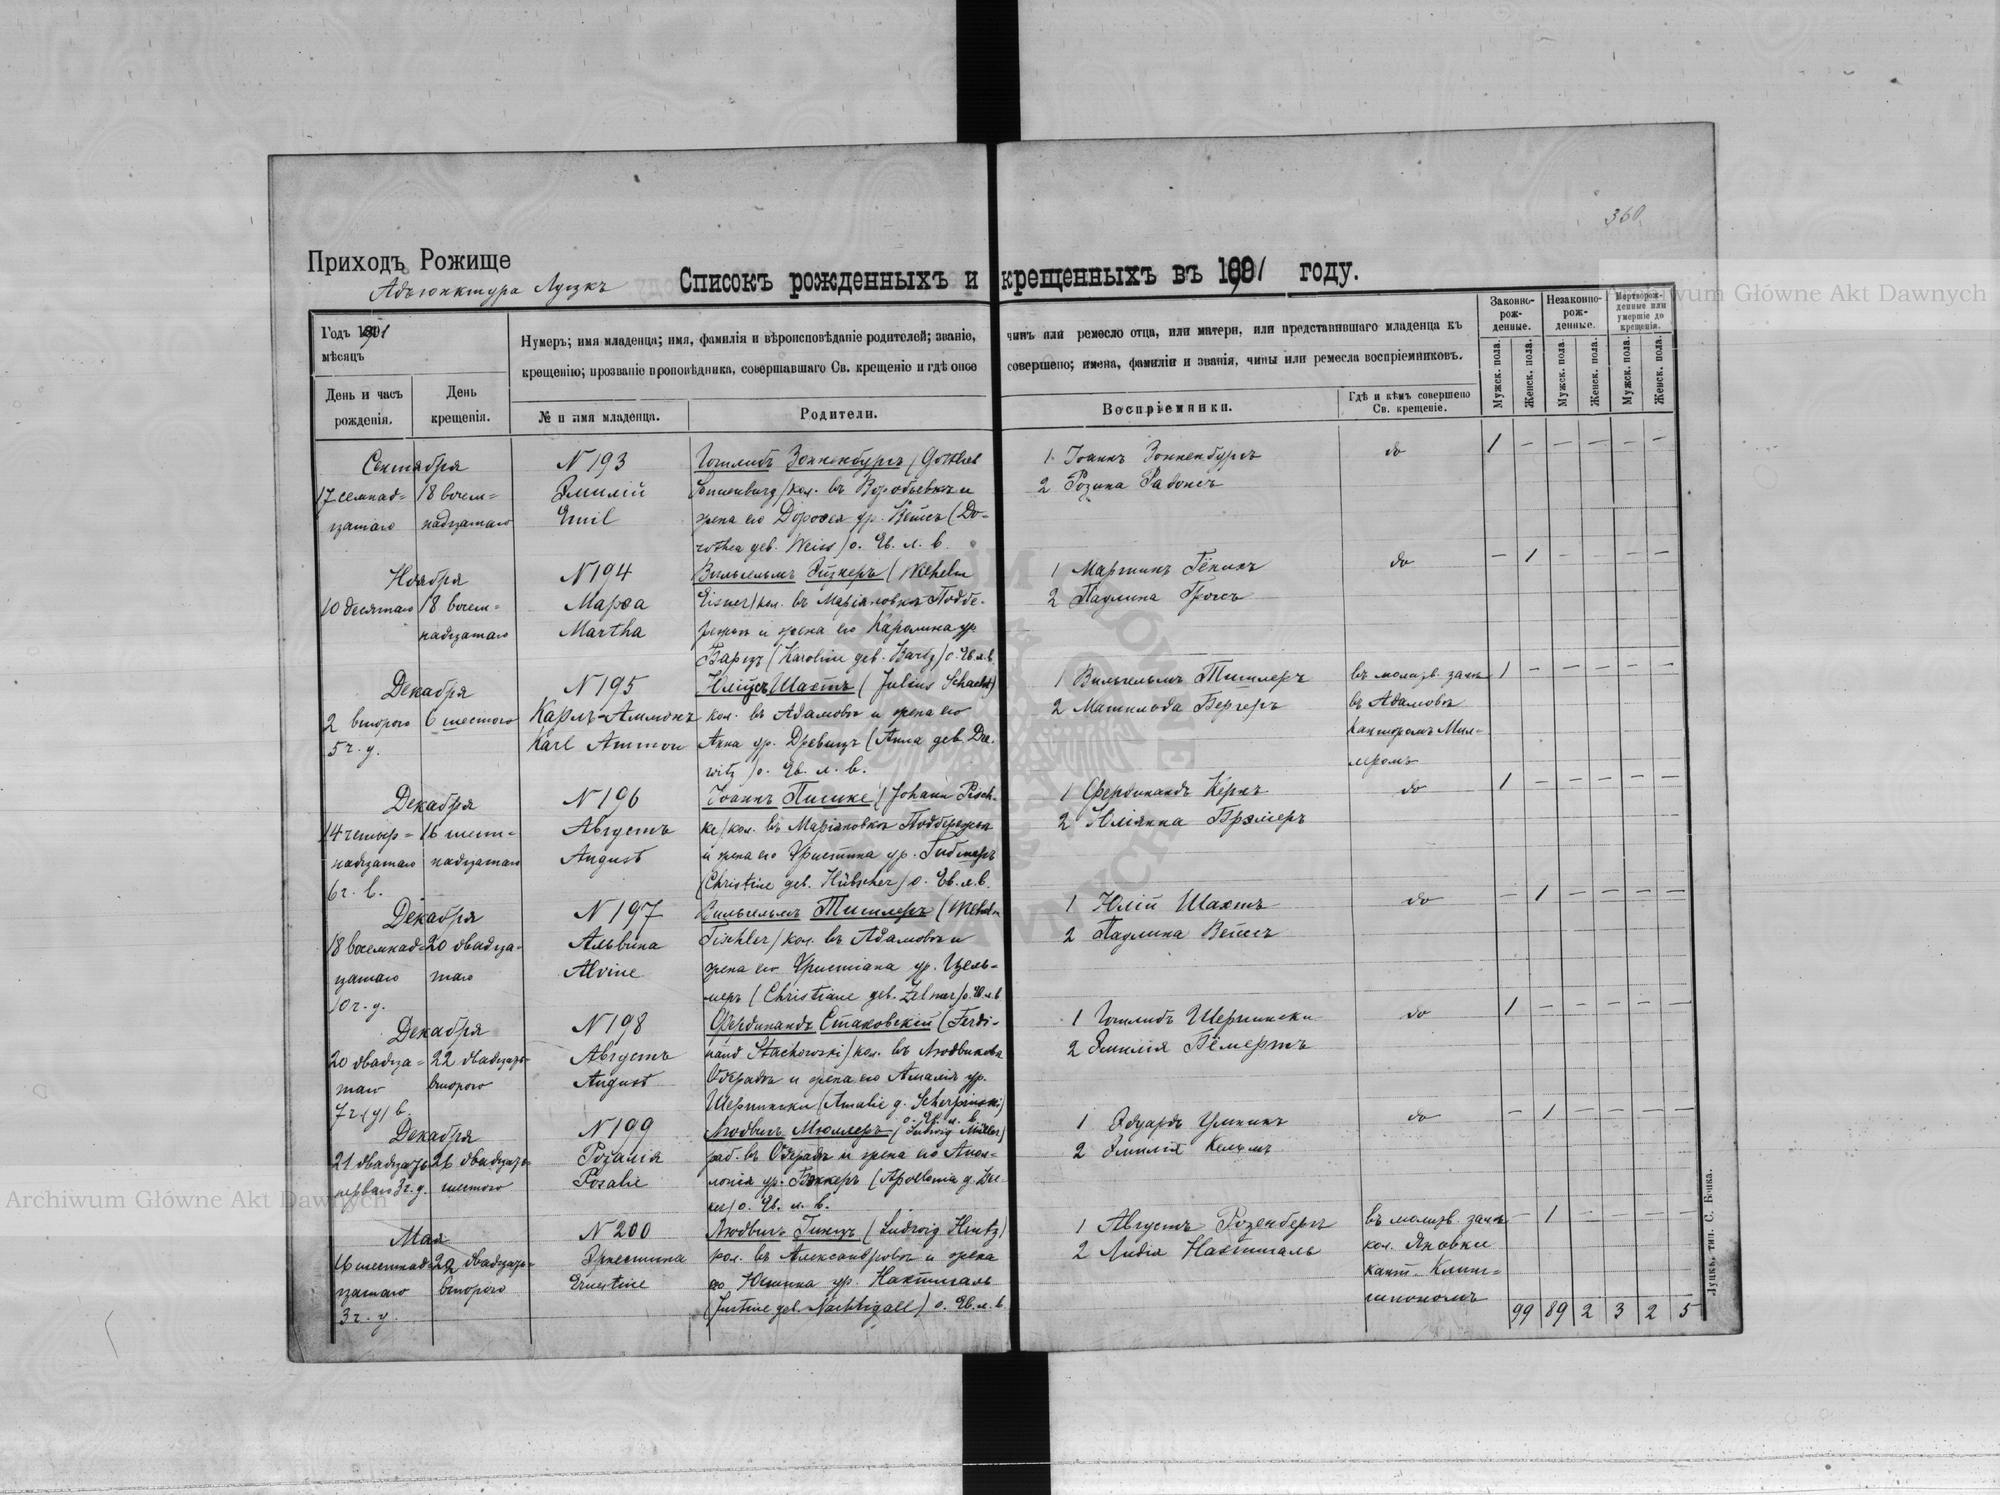 360
Приходъ Рожище
Адъюнктура Луцкъ
Списокъ рожденныхъ и крещенныхъ въ 1891 году.
Archiwum Główne Akt Dawnych
Годъ 1891
мѣсяцъ
День и часъ
рожденія.
День
крещенія.
Нумеръ; имя младенца; имя, фамилія и вѣроисповѣданіе родителей; званіе,
крещенію; прозваніе проповѣдника, совершавшаго Св. крещеніе и гдѣ оное
№ и имя младенца.
Родители.
чинъ или ремесло отца, или матери, или представившаго младенца къ
совершено; имена, фамиліи и званія, чины или ремесла воспріемниковъ.
Воспріемники.
Гдѣ и кѣмъ совершено
Св. крещеніе.
Законно-
рож-
денные.
Незаконно-
рож-
денные.
Мертворож-
денные или
умершіе до
крещенія.
Мужск. пола.
Женск. пола.
Мужск. пола.
Женск. пола.
Мужск. пола.
Женск. пола.
Сентября
17 семнад=
цатаго
18 восем=
надцатаго
N 193
Эмилій
Emil
Готлибъ Зонненбургъ (Gottlieb
Sonnenburg) кол. въ Воробьевкѣ и
жена его Доротея ур. Вейсъ (Do-
rothea geb. Weiss) о. Ев. л. в.
1 Іоаннъ Зонненбургъ
2 Розина
do
1 — — — — —
Ноября
10 десятаго
18 восем=
надцатаго
N 194
Марѳа
Martha
Вильгельмъ Эйзнеръ (Wilhelm
Eisner) кол. въ Маріяновкѣ Подбе-
режье и жена его Каролина ур
Барцъ (Karoline geb. Bartz) о. Ев. л. в.
1 Мартинъ
2 Паулина
do
— 1 — — — —
Декабря
2 второго
5 ч. у.
6 шестого
N 195
Карлъ-Аммонъ
Karl Ammon
Юліусъ Шахтъ (Julius Schacht)
кол. въ Адамовкѣ и жена его
Анна ур. Древицъ (Anna geb. Dre-
witz) о. Ев. л. в.
1 Вильгельмъ Тишлеръ
2 Матильда Бергеръ
въ молитв. залѣ
въ Адамовкѣ
Канторомъ Мил-
леромъ
1 — — — — —
Декабря
14 четыр=
надцатаго
6 ч. в.
16 шест=
надцатаго
N 196
Августъ
August
Іоаннъ Пишке (Johann Pisch-
ke) кол. въ Маріановкѣ Подбережья
и жена его Христина ур. Гибшеръ
(Christine geb. Hübscher) о. Ев. л. в.
1 Фердинандъ Кернъ
2 Юліянна Брэмеръ
do
1 — — — — —
Декабря
18 восемнад=
цатаго
10 ч. у.
20 двадца-
таго
N 197
Альвина
Alvine
Вильгельмъ Тишлеръ (Wilhelm
Tischler) кол. въ Адамовкѣ и
жена его Христіана ур. Цель-
меръ (Christiane geb. Zelmer) о. Ев. л. в
1 Юлій Шахтъ
2 Паулина Вейсъ
do
— 1 — — — —
Декабря
20 двадца=
таго
7 ч. (у) в.
22 двадцать
второго
N 198
Августъ
August
Фердинандъ Стаховскій (Ferdi-
nand Stachowski) кол. въ Людвиковкѣ
Одерадѣ и жена его Амалія ур.
Шерпински (Amalie g. Scherpinski)
о. Ев. л. в.
1 Готлибъ Шерпински
2 Эмилія Бёмертъ
do
1 — — — — —
Декабря
21 двадцать
перваго 3 ч. у.
26 двадцать
шестого
N 199
Розалія
Rosalie
Людвигъ Мюллеръ (Ludwig Müller)
раб. въ Одерадѣ и жена его Апол-
лонія ур. Беккеръ (Apollonia g. Bec-
ker) о. Ев. л. в.
1 Эдуардъ
2 Эмилія Кельмъ
do
— 1 — — — —
Мая
16 шестнад=
цатаго
3 ч. у.
22 двадцать
второго
N 200
Эрнестина
Ernestine
Людвигъ Гинцъ (Ludwig Hintz)
кол. въ Александровкѣ и жена
его Юстина ур. Нахтигаль
(Justine geb. Nachtigall) о. Ев. л. в.
1 Августъ Розенбергъ
2 Лидія Нахтигаль
въ молитв. залѣ
кол. Яновки
кант. Клинг=
— 1 — — — —
99 89 2 3 2 5
Луцкъ, тип. С. Бонка.
Archiwum Główne Akt Dawnych